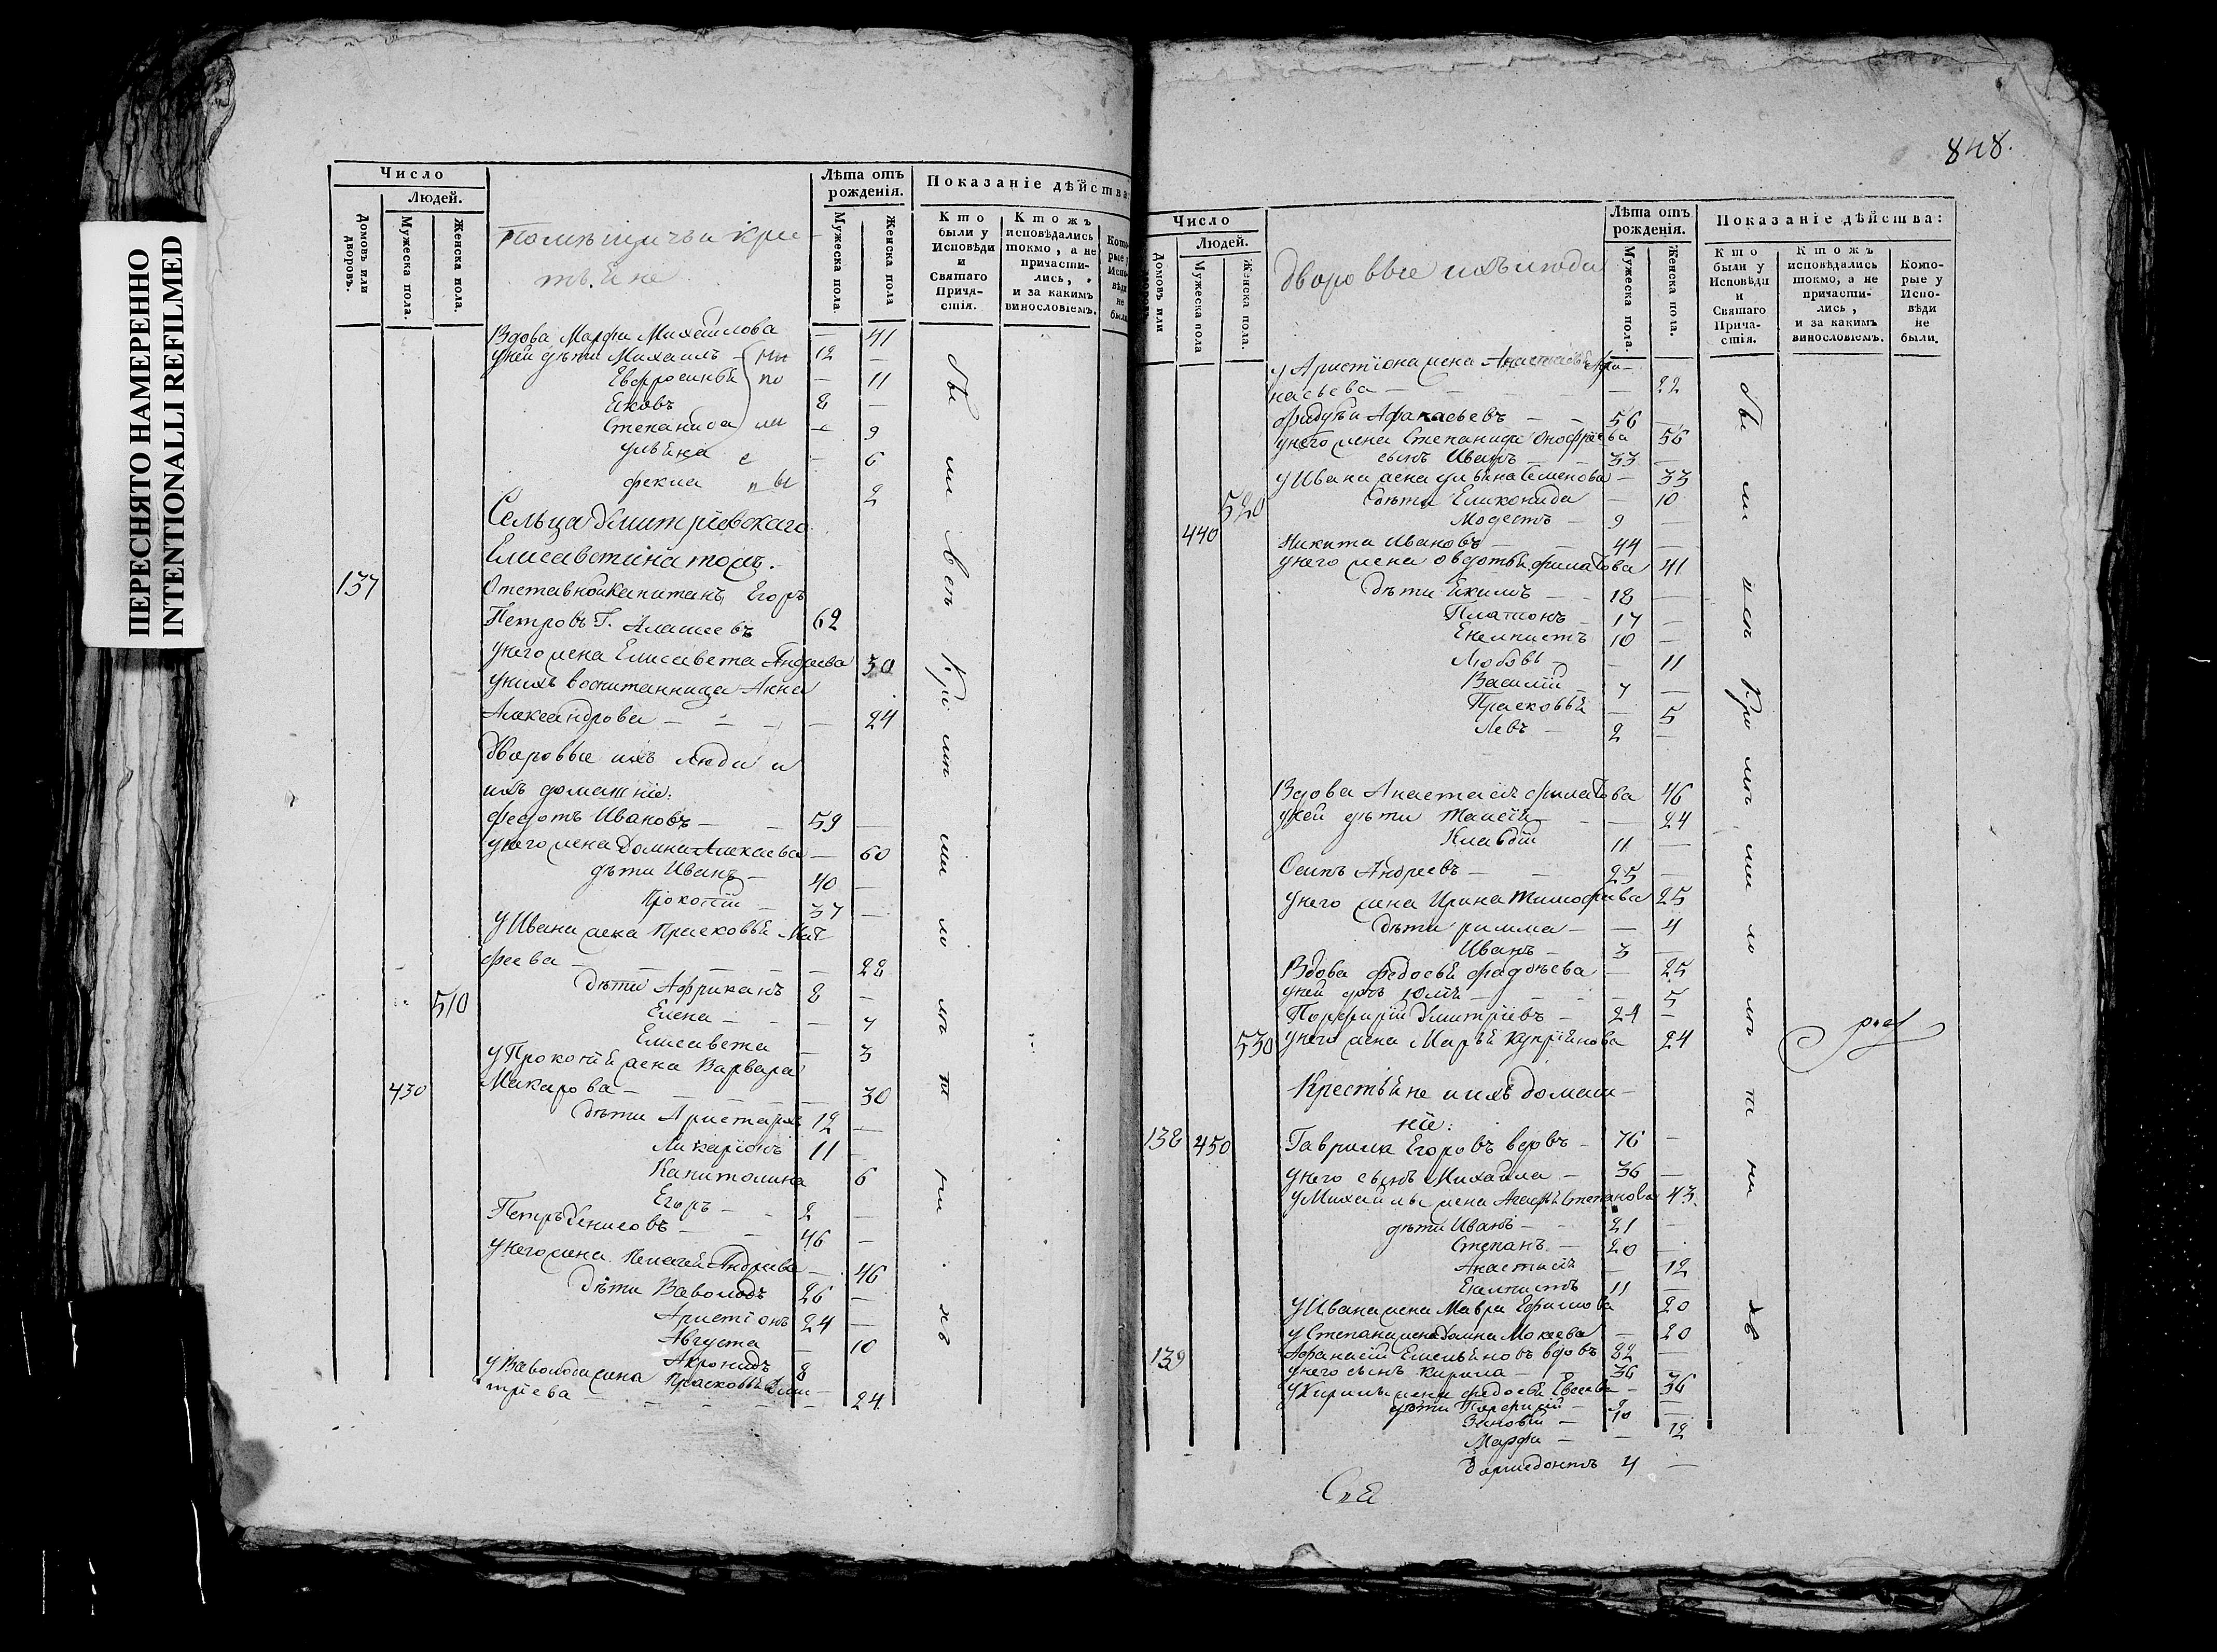 ПЕРЕСНЯТО НАМЕРЕННО
INTENTIONALLI REFILMED
Число
Людей.
Домовъ или дворовъ.
Мужеска пола.
Женска пола.
Помѣщичьи кре-
стьяне
Лѣта отъ рожденія.
Мужеска пола.
Женска пола
Показаніе дѣйства:
Кто были у Исповѣди и Святаго Прича-стія.
Ктожъ исповѣдались токмо, а не причасти-лись, и за какимъ винословіемъ.
Вдова Марфа Михайлова 41
у ней дѣти Михаилъ 12 —
Евфросинья — 11
Яковъ 8 —
Степанида — 9
Ульяна — 6
Фекла 2
Сельца Дмитріевскаго
Елисаветина тожъ.
137 Отставной Капитанъ Егоръ
Петровъ Г. Алашеевъ 62
у него жена Елисавета Андреева 50
у нихъ воспитанница Анна
Александрова — — — — 24
Дворовые ихъ люди и
ихъ домашніе:
Федотъ Ивановъ — — 59 —
у него жена Домна Алексеева — 60
дѣти Иванъ — 40 —
Прокопій — 37 —
у Ивана жена Прасковья Мат
феева — — — — 28
дѣти Африканъ 8 —
510 Елена — — — 7
Елисавета — 3
у Прокопья жена Варвара
430 Макарова — — — — 30
дѣти Аристархъ 12 —
Иларіонъ 11 —
Капитолина 6
Егоръ — — 2 —
Петръ Денисовъ — — 46 —
у него жена Пелагея Андреева — 46
дѣти Вавилодъ 26 —
Аристіонъ 24 —
Августа — 10
Акронидъ 8
у Вавилода жена Прасковья Дми-
тріева — — — — 24
848.
Число
Людей.
Домовъ или
Мужеска пола
Женска пола.
Дворовые ихъ люди
Лѣта отъ рожденія.
Мужеска пола.
Женска пола.
Показаніе дѣйства:
Кто были у Исповѣди и Святаго Прича-стія.
Ктожъ исповѣдались токмо, а не причасти-лись, и за какимъ винословіемъ.
Кото-рые у Испо-вѣди не были.
у Аристіона жена Анастасья Афа-
насьева — — — — 22
Фадѣй Афанасьевъ — — 56 —
у него жена Степанида Онофріева 56
сынъ Иванъ — — 33 —
у Ивана жена Ульяна Семенова — 33
520 дѣти Еликонида — 10
Модестъ — 9 —
440 Никита Ивановъ — — 44 —
у него жена Овдотья Филатова 41
дѣти Екимъ — — 18 —
Платонъ — 17 —
Екемпистъ 10 —
Любовь — — 11
Василій — 7 —
Прасковья — 5
Левъ — 2 —
Вдова Анастасія Филатова 46
у ней дѣти Таисія — — 24
Клавдій 11 —
Осипъ Андреевъ — — 25 —
у него жена Ирина Тимофѣева 25
дѣти Римма — — 4
Иванъ — 3 —
Вдова Федосья Фадѣева — 25
у ней дочь Юлія — — — 5
Порфирій Дмитріевъ — 24 —
530 у него жена Марья Купріянова 24
Крестьяне и ихъ домаш-
ніе:
138 450 Гаврила Егоровъ вдовъ — 76 —
у него сынъ Михайла — 36 —
у Михайлы жена Агафья Степанова 43
дѣти Иванъ — 21 —
Степанъ — 20 —
Анастасія — 12
Екемпистъ 11 —
у Ивана жена Мавра Ефимова 20
у Степана жена Домна Мокеева — 20
139 Афанасій Емельяновъ вдовъ 82 —
у него сынъ Кирила — 36 —
у Кирилы жена Федосья Евсеева — 36
дѣти Порфирій —
Зиновій — 10 —
Марфа — — 12
Дормедонтъ 4 —